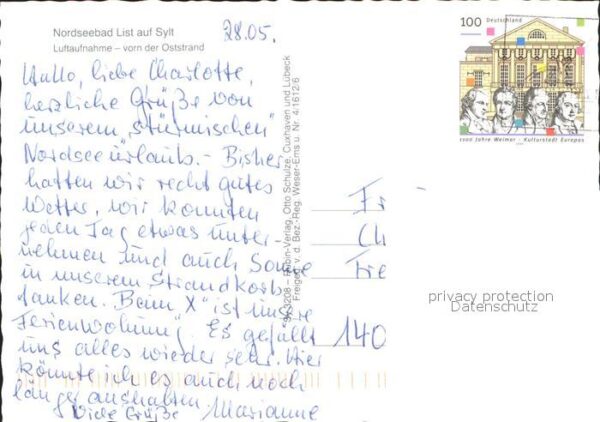 Nordseebad List auf Sylt
Luftaufnahme – vorn der Oststrand
28.05.
Hallo, liebe Charlotte,
herzliche Grüße von
unserem "stürmischen"
Nordseeurlaub. - Bisher
hatten wir recht gutes
Wetter, wir konnten
jeden Tag etwas unter-
nehmen und auch Sonne
in unserem Strandkorb
tanken. Beim "X" ist unsere
Ferienwohnung. Es gefällt
uns alles wieder sehr. Hier
könnte ich es auch noch
länger aushalten.
Viele Grüße Marianne
Sy 3208 – Rubin-Verlag, Otto Schulze, Cuxhaven und Lübeck
Freigeg. v. d. Bez.-Reg. Weser-Ems u. Nr. 4-1612/6
100 Deutschland
1100 Jahre Weimar · Kulturstadt Europas
Fr
Ch
Fre
140
privacy protection
Datenschutz